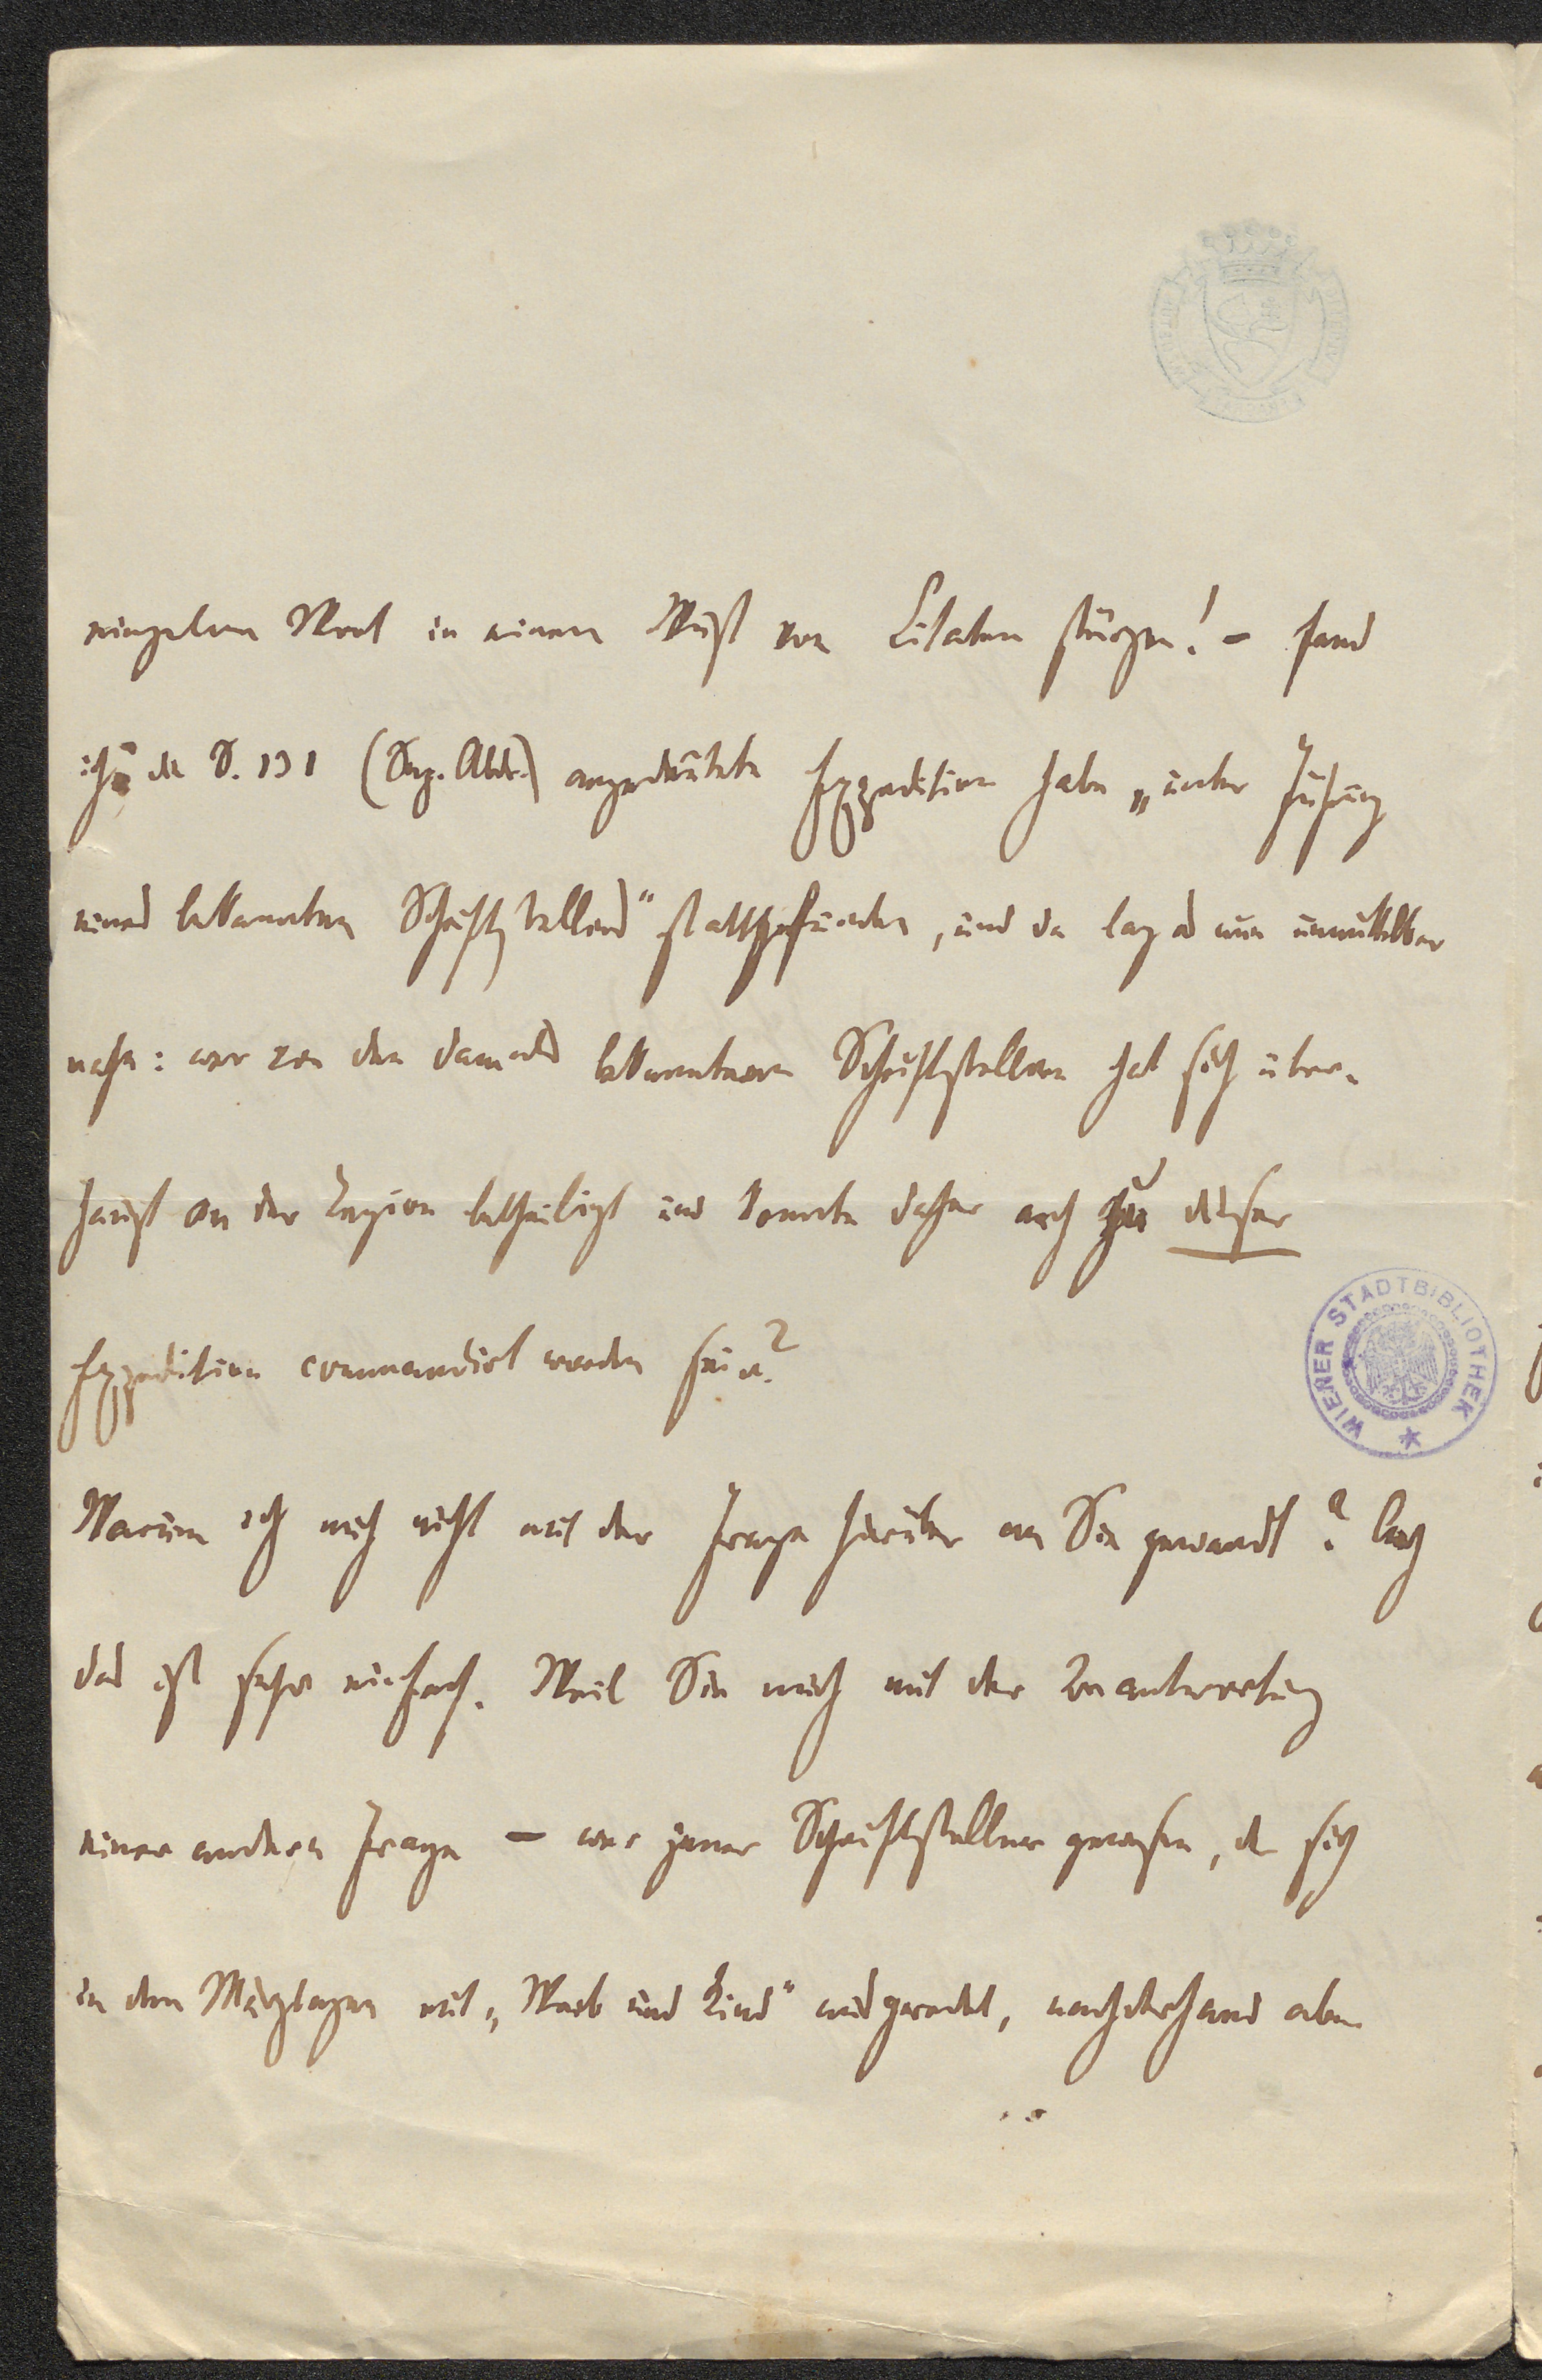 einzelnen Wort in einen Wust von Citaten stürzen! – fand
ich, die S. 131 (Sep. Abdr.) angedeutete Expedition habe „unter Führung
eines bekannten Schriftstellers" stattgefunden, und da lag es nun unmittelbar
nahe: wer von den damals bekannteren Schriftstellern hat sich über-
haupt an der Legion betheiligt und konnte daher auch zu dieser
Expedition commandirt worden sein?
Warum ich mich nicht mit der Frage hierüber an Sie gewandt?
das ist sehr einfach. Weil Sie mich mit der Beantwortung
einer anderen Frage – wer jener Schriftsteller gewesen, der sich
in den Märztagen mit „Weib und Kind" nachderhand aber
WIENER STADTBIBLIOTHEK